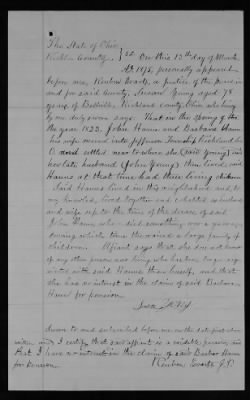 The State of Ohio
Richland County } SS. On this 13th day of March
A.D. 1875, personally appeared
before me, Reuben Evarts, a justice of the peace in
and for said County, Susan Young aged 78
years, of Bellville, Richland County Ohio, who being
by me duly sworn says: That in the Spring of
the year 1823, John Hanes and Barbara Hanes
his wife moved into Jefferson Township Richland Co
O. and settled near to where she (said Young) and
her late husband (John Young) then lived, said
Hanes at that time had three living children
Said Hanes lived in this neighborhood and to
my knowledge, lived together and cohabited as husband
and wife up to the time of the decease of said
John Hanes, who died something over a year
during which time they raised a large family of
children. Affiant says that she does not know
of any other person now living who has been longer acqu-
ainted with said Hanes than herself, and that
she has no interest in the claim of said Barbara
Hanes for pension.
Sworn to and subscribed before me on the date first above
written and I certify that said affiant is a credible person, and
that I have no interest in the claim of said Barbara Hanes
for Pension.
Reuben Evarts J.P.